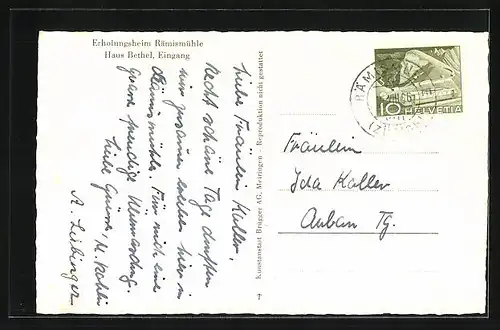 Erholungsheim Rämismühle
Haus Bethel, Eingang
Liebe Fräulein Keller,
Recht schöne Tage durften
wir zusammen erleben hier in
Rämismühle. Für mich eine
ganz freudige
liebe Grüsse,
Kunstanstalt Brügger AG, Meiringen - Reproduktion nicht gestattet
10 HELVETIA
Fräulein
Ida Keller
Tg.